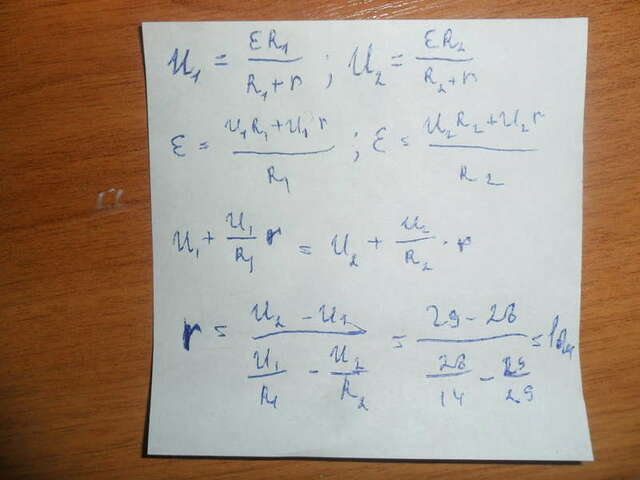 U₁ = εR₁/(R₁+r) ; U₂ = εR₂/(R₂+r)
ε = (U₁R₁+U₁r)/R₁ ; ε = (U₂R₂+U₂r)/R₂
U₁ + U₁/R₁ r = U₂ + U₂/R₂ · r
r = (U₂ - U₁)/(U₁/R₁ - U₂/R₂) = (29-28)/(28/14 - 29/29) = 1Ом